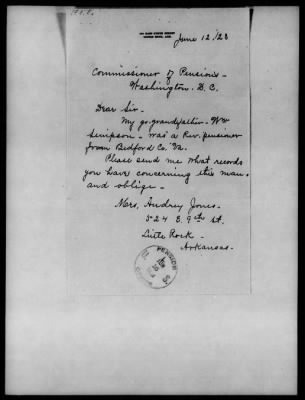 June 12/23
Commissioner of Pensions -
Washington. D. C.
Dear Sir -
My gr. grandfather - Wm
Simpson - was a Rev. pensioner
from Bedford Co. Va.
Please send me what records
you have concerning this man
and oblige -
Mrs. Audrey Jones -
324 E. 9th St.
Little Rock -
Arkansas -